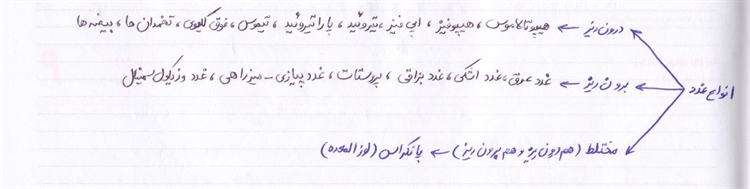 درون ریز ← هیپوتالاموس ، هیپوفیز ، اپی فیز ، تیروئید ، پاراتیروئید ، تیموس ، فوق کلیوی ، تخمدان ها ، بیضه ها
انواع غدد
برون ریز ← غدد عرق ، غدد اشکی ، غدد بزاقی ، پروستات ، غدد پیازی - میزراهی ، غدد وزیکول سمینال
مختلط (هم درون ریز و هم برون ریز) ← پانکراس (لوزالمعده)